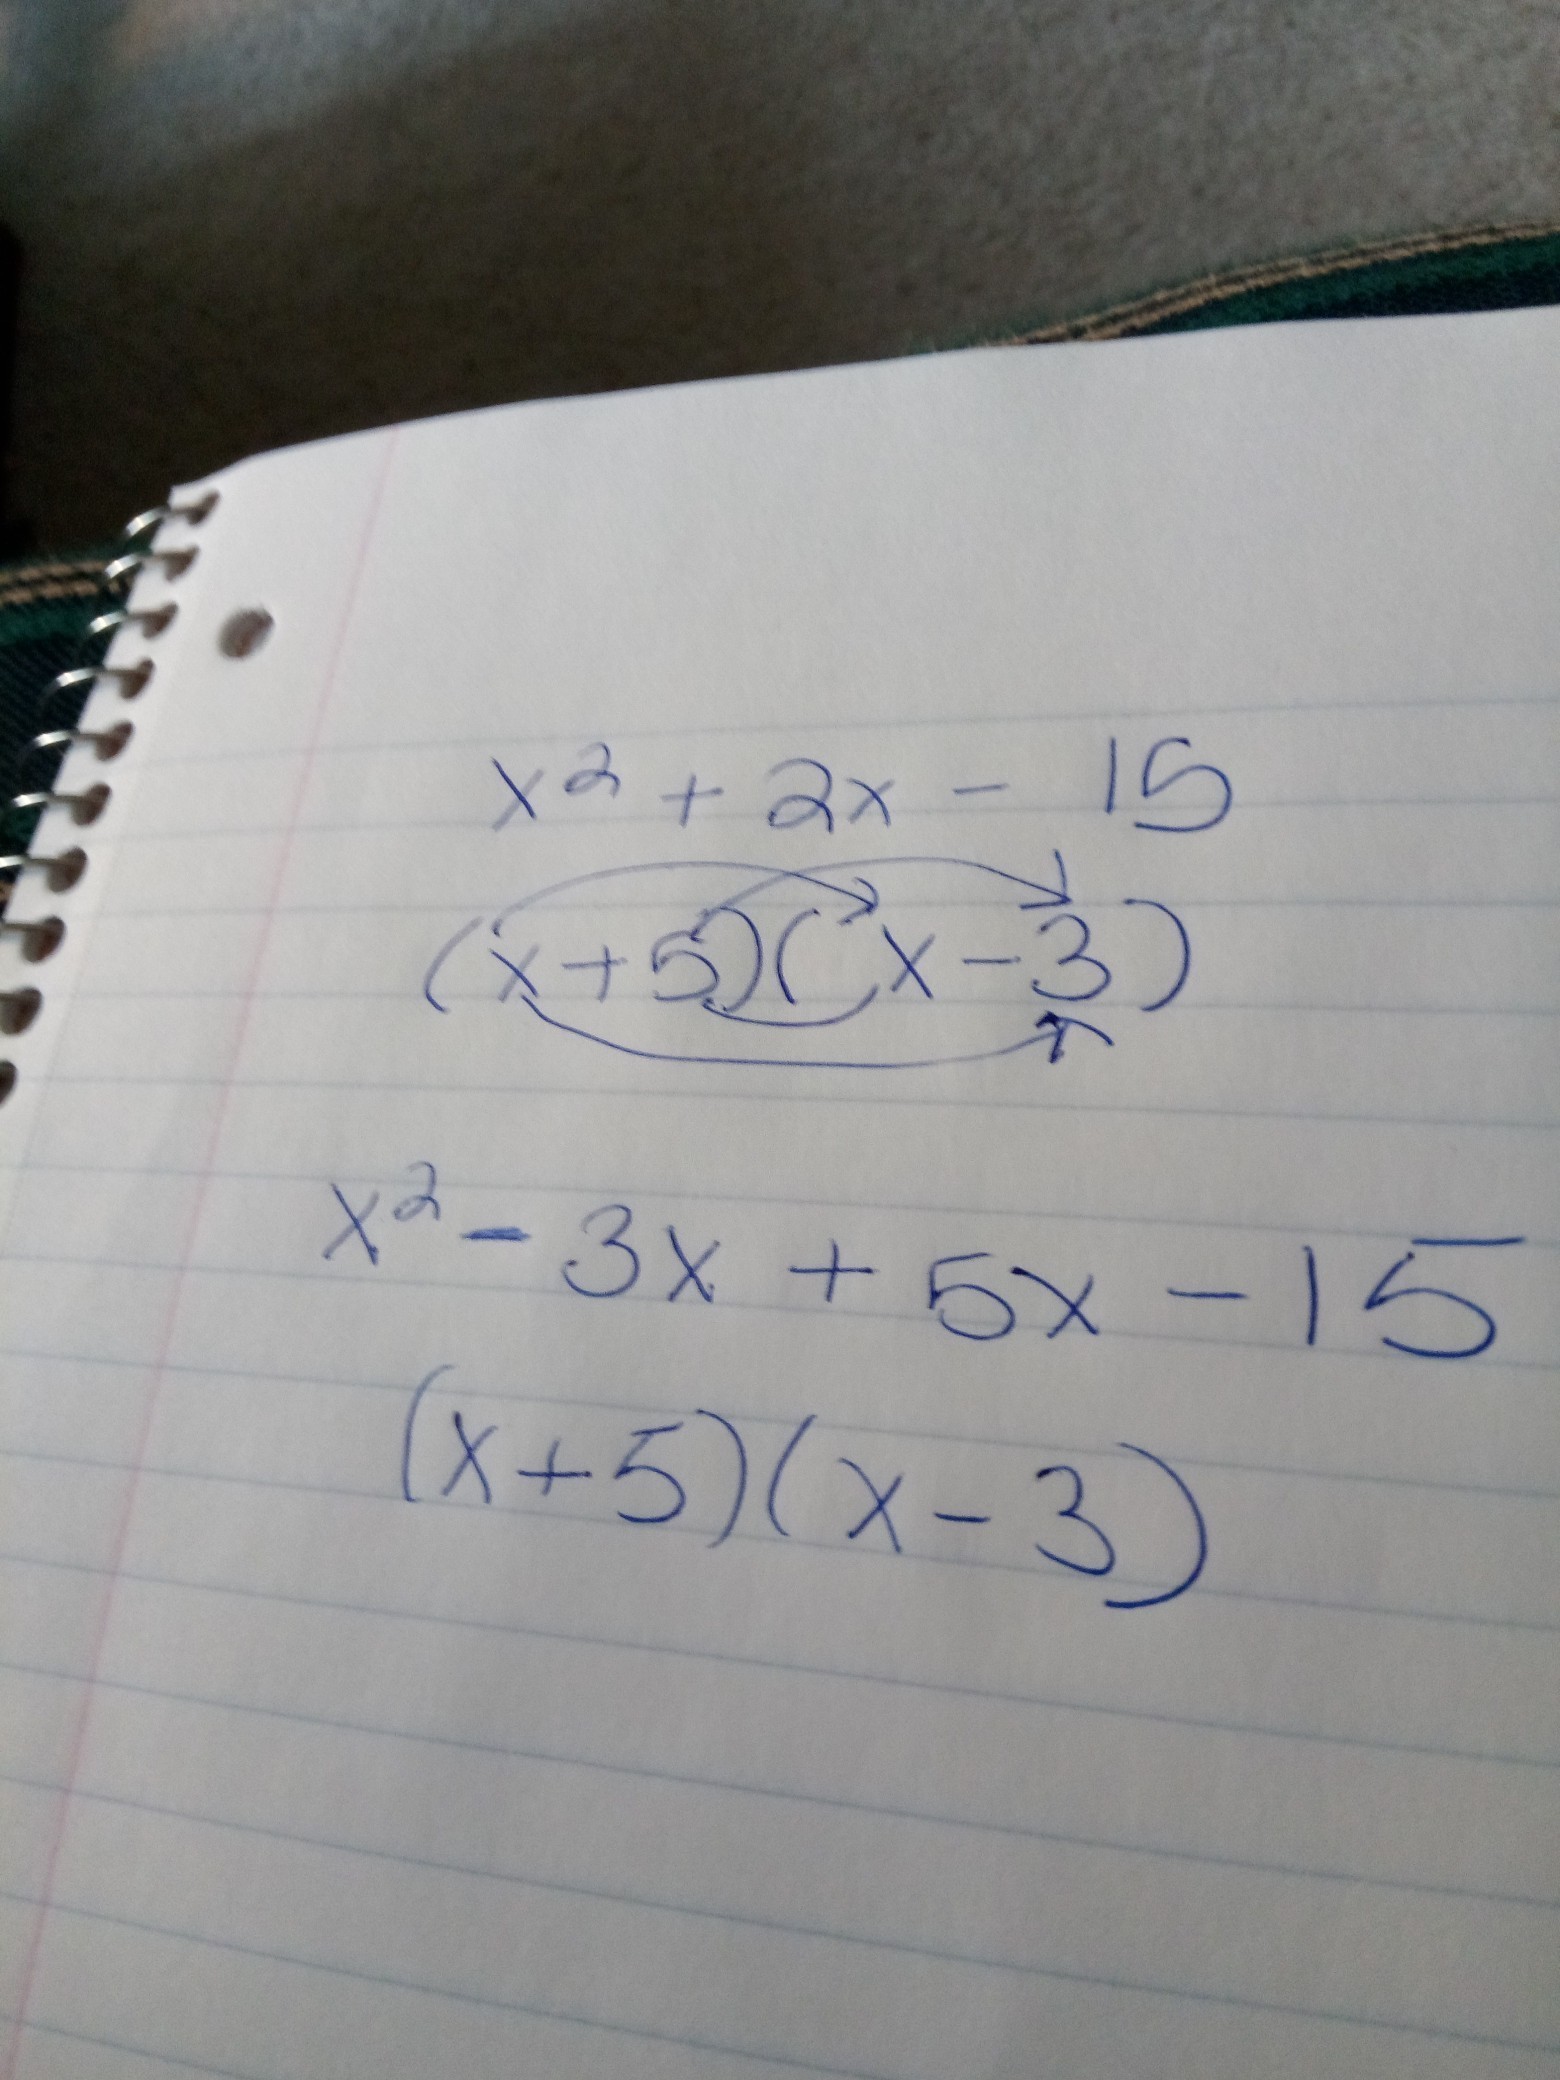 x² + 2x - 15
(x+5)(x-3)
x² - 3x + 5x - 15
(x+5)(x-3)